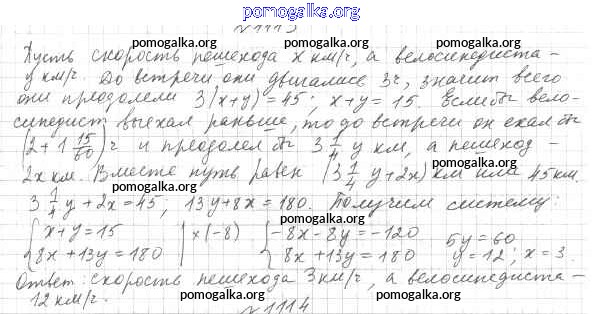 pomogalka.org
№1113
Пусть скорость пешехода x км/ч, а велосипедиста –
pomogalka.org pomogalka.org
y км/ч. До встречи они двигались 3ч, значит всего
они преодолели 3(x+y)=45; x+y=15. Если бы вело-
pomogalka.org pomogalka.org
сипедист выехал раньше, то до встречи он ехал бы
(2+1 15/60)ч и преодолел бы 3 1/4 y км, а пешеход –
pomogalka.org
2x км. Вместе путь равен (3 1/4 y+2x)км или 45 км.
pomogalka.org pomogalka.org
3 1/4 y+2x=45; 13y+8x=180. Получим систему:
pomogalka.org pomogalka.org
{x+y=15 |x(-8) {-8x-8y=-120 5y=60
{8x+13y=180 {8x+13y=180 y=12; x=3.
pomogalka.org
Ответ: скорость пешехода 3км/ч, а велосипедиста –
12 км/ч. pomogalka.org pomogalka.org
№1114
pomogalka.org